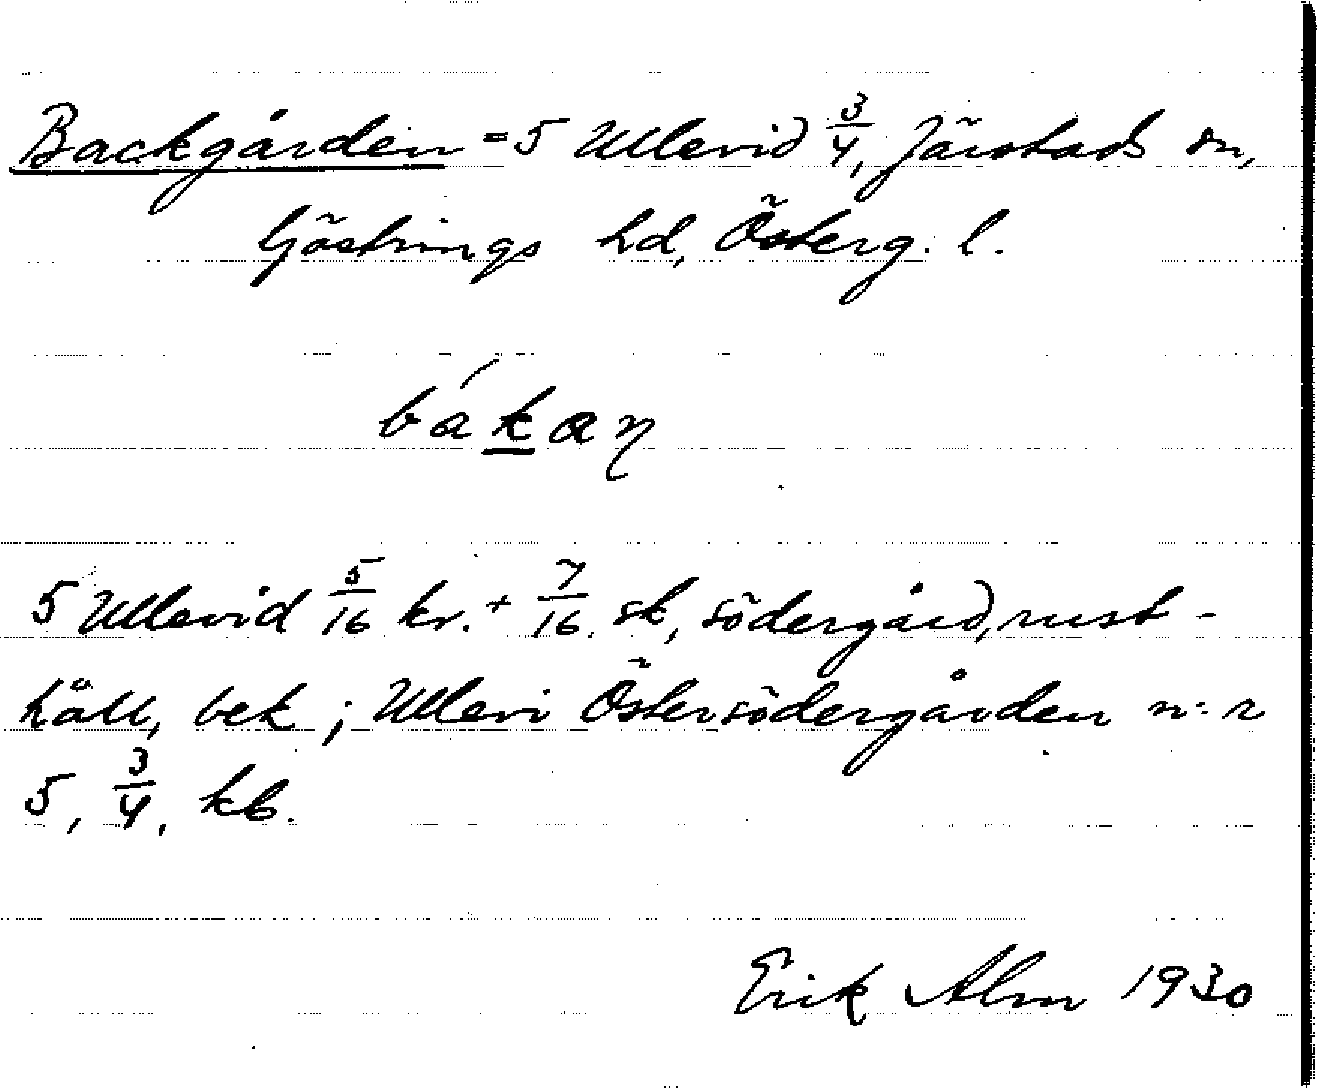 Backgården = 5 Ullevid 3/4, Järstads sn,
Göstrings hd, Österg. l.
bákan
5 Ullevid 5/16 kr. + 7/16 sk, södergård, rust-
håll, bek; Ullevi Östersödergården n:r
5, 3/4, kb.
Erik Alm 1930